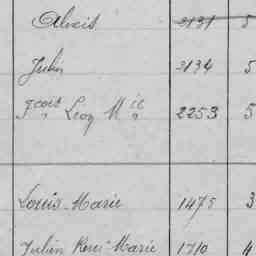 Alexis 2131 5
Julien 2134 5
Fçois Léon Mie 2253 5
Louis-Marie 1475 3
Julien René Marie 1710 4